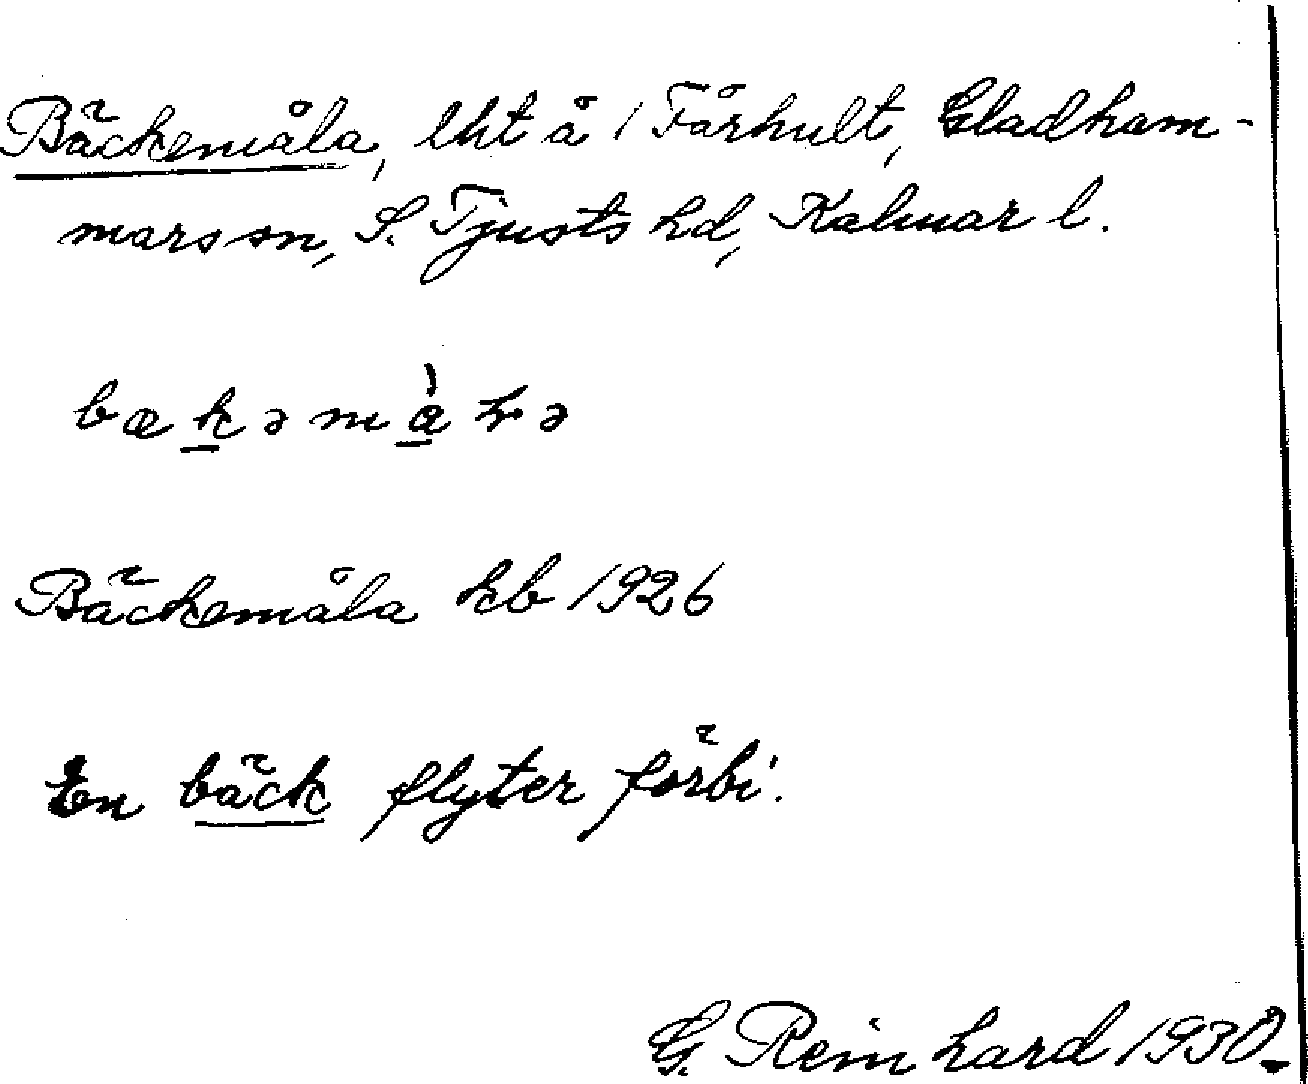 Bäckemåla, lht å 1 Fårhult, Gladham-
mars sn, S. Tjusts hd, Kalmar l.
bækəmàlə
Bäckemåla kb 1926
En bäck flyter förbi.
G. Reinhard 1930